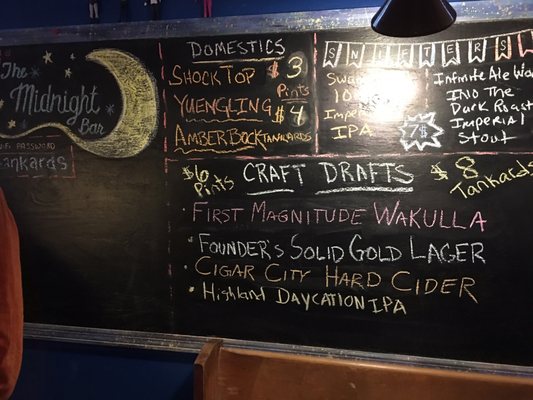 The
Midnight
Bar
WiFi PASSWORD
tankards
DOMESTICS
SHOCK TOP $3
Pints
YUENGLING $4
AMBERBOCK TANKARDS
SNIFTERS
Imperial
IPA
7$
Infinite Ale Wo
INO The
Dark Roast
Imperial
Stout
$6 Pints
CRAFT DRAFTS
$8 Tankards
· FIRST MAGNITUDE WAKULLA
· FOUNDER'S SOLID GOLD LAGER
· CIGAR CITY HARD CIDER
· Highland DAYCATION IPA